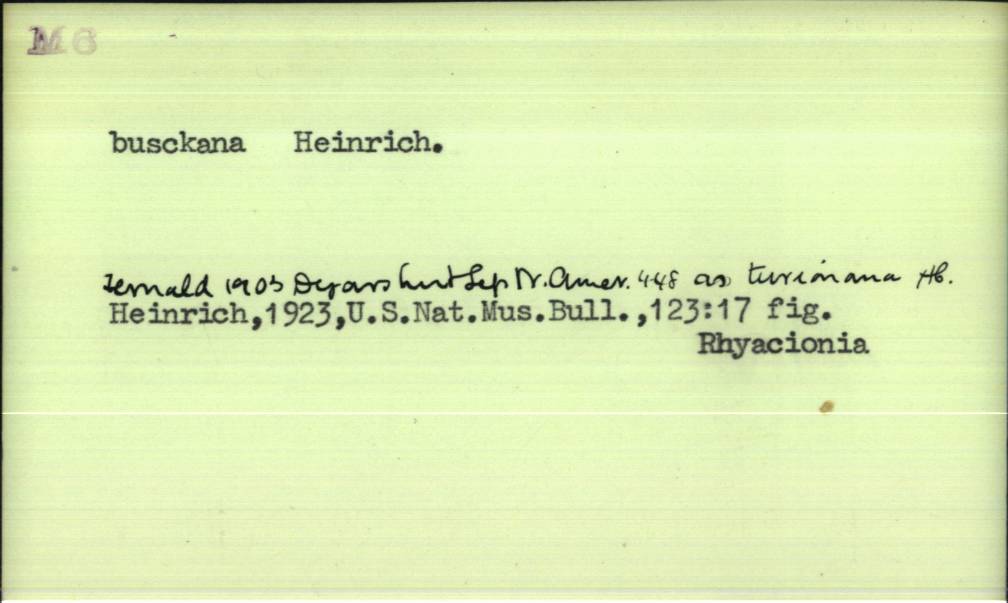 M6
busckana Heinrich.
Fernald 1903 Dyars List Lep N. Amer. 448 as turionana Hb.
Heinrich,1923,U.S.Nat.Mus.Bull.,123:17 fig.
Rhyacionia